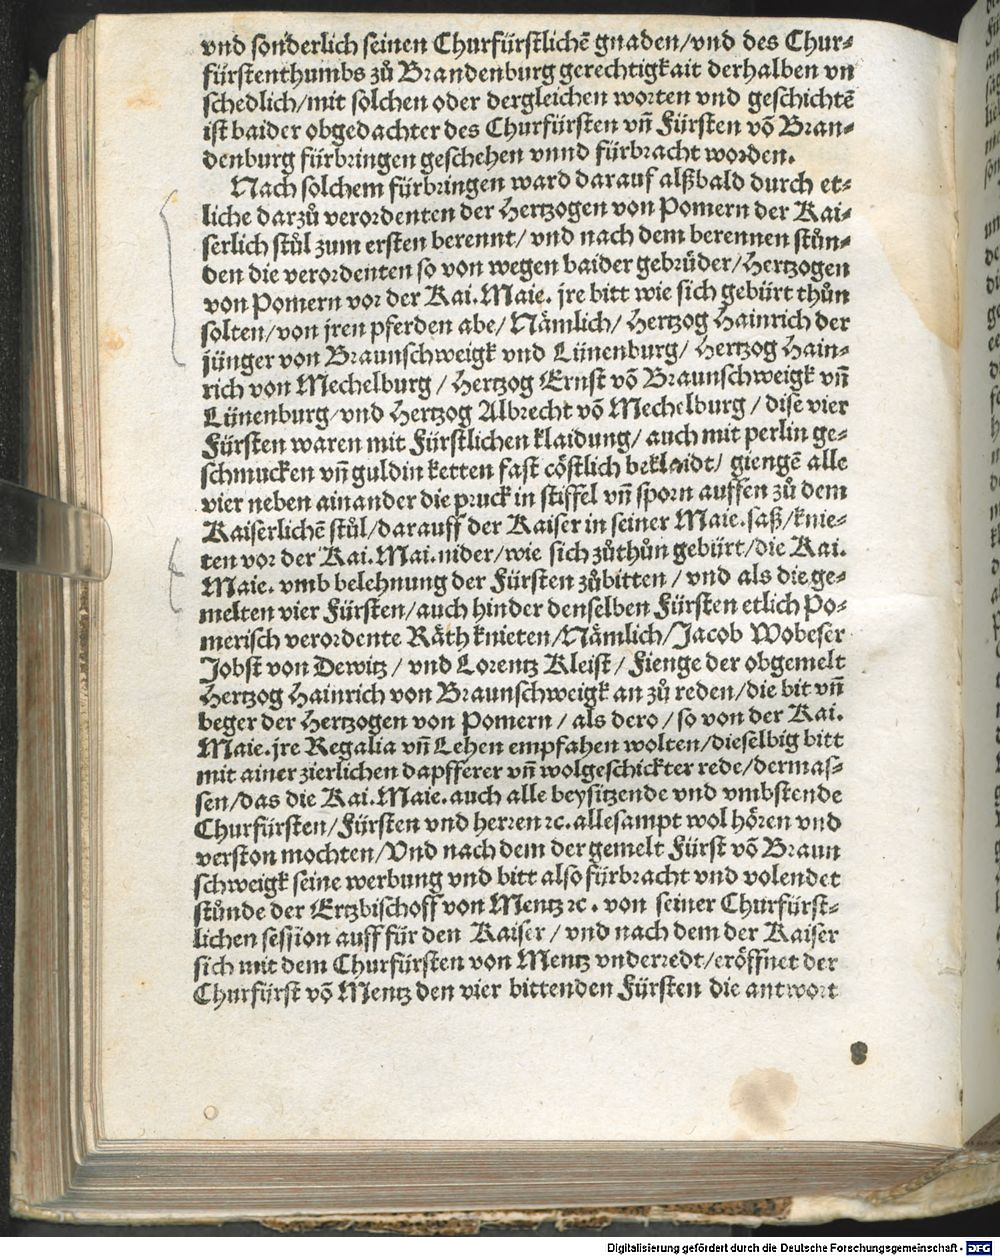 vnd sonderlich seinen Churfürstlichẽ gnaden/vnd des Chur⸗
fürstenthumbs zů Brandenburg gerechtigkait derhalben vn
schedlich/mit solchen oder dergleichen worten vnd geschichtẽ
ist baider obgedachter des Churfürsten vñ Fürsten võ Bran⸗
denburg fürbringen geschehen vnnd fürbracht worden.
Nach solchem fürbringen ward darauf alßbald durch et⸗
liche darzů verordenten der Hertzogen von Pomern der Kai⸗
serlich stůl zum ersten berennt/ vnd nach dem berennen stůn⸗
den die verordenten so von wegen baider gebrüder/Hertzogen
von Pomern vor der Kai.Maie. jre bitt wie sich gebürt thůn
solten/von jren pferden abe/Nämlich/ Hertzog Hainrich der
jünger von Braunschweigk vnd Lünenburg/ Hertzog Hain⸗
rich von Mechelburg / Hertzog Ernst võ Braunschweigk vñ
Lünenburg/vnd Hertzog Albrecht võ Mechelburg / dise vier
Fürsten waren mit Fürstlichen klaidung/ auch mit perlin ge⸗
schmucken vñ guldin ketten fast cöstlich beklaidt/ giengẽ alle
vier neben ainander die pruck in stiffel vñ sporn auffen zů dem
Kaiserlichẽ stůl/darauff der Kaiser in seiner Maie.saß/knie⸗
ten vor der Kai.Mai.nider/wie sich zůthůn gebürt/die Kai.
Maie. vmb belehnung der Fürsten zůbitten / vnd als die ge⸗
melten vier Fürsten/auch hinder denselben Fürsten etlich Po⸗
merisch verordente Räth knieten/Nämlich/Jacob Wobeser
Jobst von Dewitz / vnd Lorentz Kleist / Fienge der obgemelt
Hertzog Hainrich von Braunschweigk an zů reden/die bit vñ
beger der Hertzogen von Pomern / als dero / so von der Kai.
Maie.jre Regalia vñ Lehen empfahen wolten/dieselbig bitt
mit ainer zierlichen dapfferer vñ wolgeschickter rede/dermas⸗
sen/das die Kai.Maie.auch alle beysitzende vnd vmbstende
Churfürsten/Fürsten vnd herren ꝛc.allesampt wol hören vnd
verston mochten/Vnd nach dem der gemelt Fürst võ Braun
schweigk seine werbung vnd bitt also fürbracht vnd volendet
stůnde der Ertzbischoff von Mentz ꝛc. von seiner Churfürst⸗
lichen session auff für den Kaiser / vnd nach dem der Kaiser
sich mit dem Churfürsten von Mentz vnderredt/eröffnet der
Churfürst võ Mentz den vier bittenden Fürsten die antwort
Digitalisierung gefördert durch die Deutsche Forschungsgemeinschaft - DFG